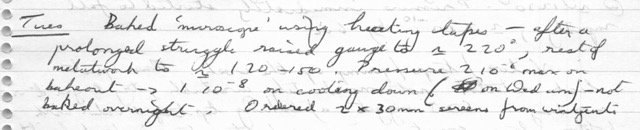 Tues Baked 'microscope' using heating tapes - after a
prolonged struggle raised gauge to ≈ 220°, rest of
metalwork to ≈ 120-150°. Pressure 2 10⁻⁶ max on
bakeout → 1 10⁻⁸ on cooling down ( on Wed) - not
baked overnight. Ordered 2 x 30mm screens from